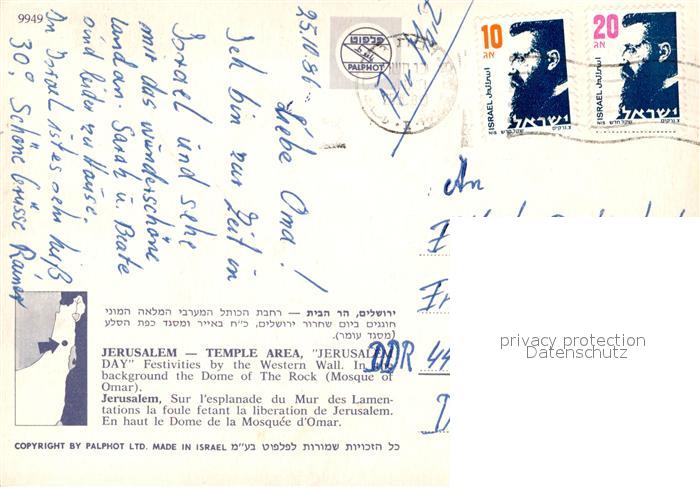 9949
פלפוט
PALPHOT
25.VI.86
Liebe Oma!
Ich bin zur Zeit in
Israel und sehe
mir das wunderschöne
Land an. Sarah u. Beate
sind leider zu Hause.
In Israel ist es sehr heiß
30°. Schöne Grüsse Rainer
Air Mail
10
אג
ISRAEL
ישראל
20
אג
ISRAEL
ישראל
An
DDR 44
privacy protection
Datenschutz
ירושלים, הר הבית — רחבת הכותל המערבי המלאה המוני
חוגגים ביום שחרור ירושלים, כ״ח באייר ומסגד כפת הסלע
(מסגד עומר).
JERUSALEM — TEMPLE AREA, "JERUSALEM
DAY" Festivities by the Western Wall. In the
background the Dome of The Rock (Mosque of
Omar).
Jerusalem, Sur l'esplanade du Mur des Lamen-
tations la foule fetant la liberation de Jerusalem.
En haut le Dome de la Mosquée d'Omar.
COPYRIGHT BY PALPHOT LTD. MADE IN ISRAEL כל הזכויות שמורות לפלפוט בע״מ